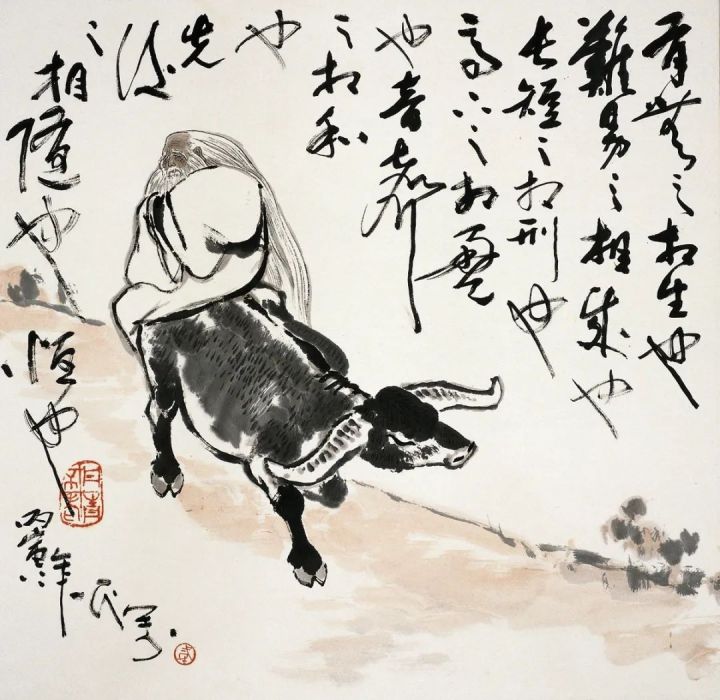 有無之相生也
難易之相成也
長短之相刑也
高下之相盈
也音聲
之相和
也
先
後
之相隨也恒也
丙寅年